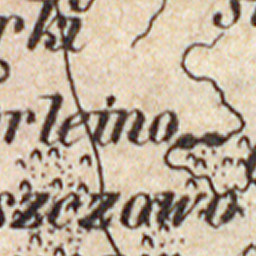 rki
rleino
szczawo